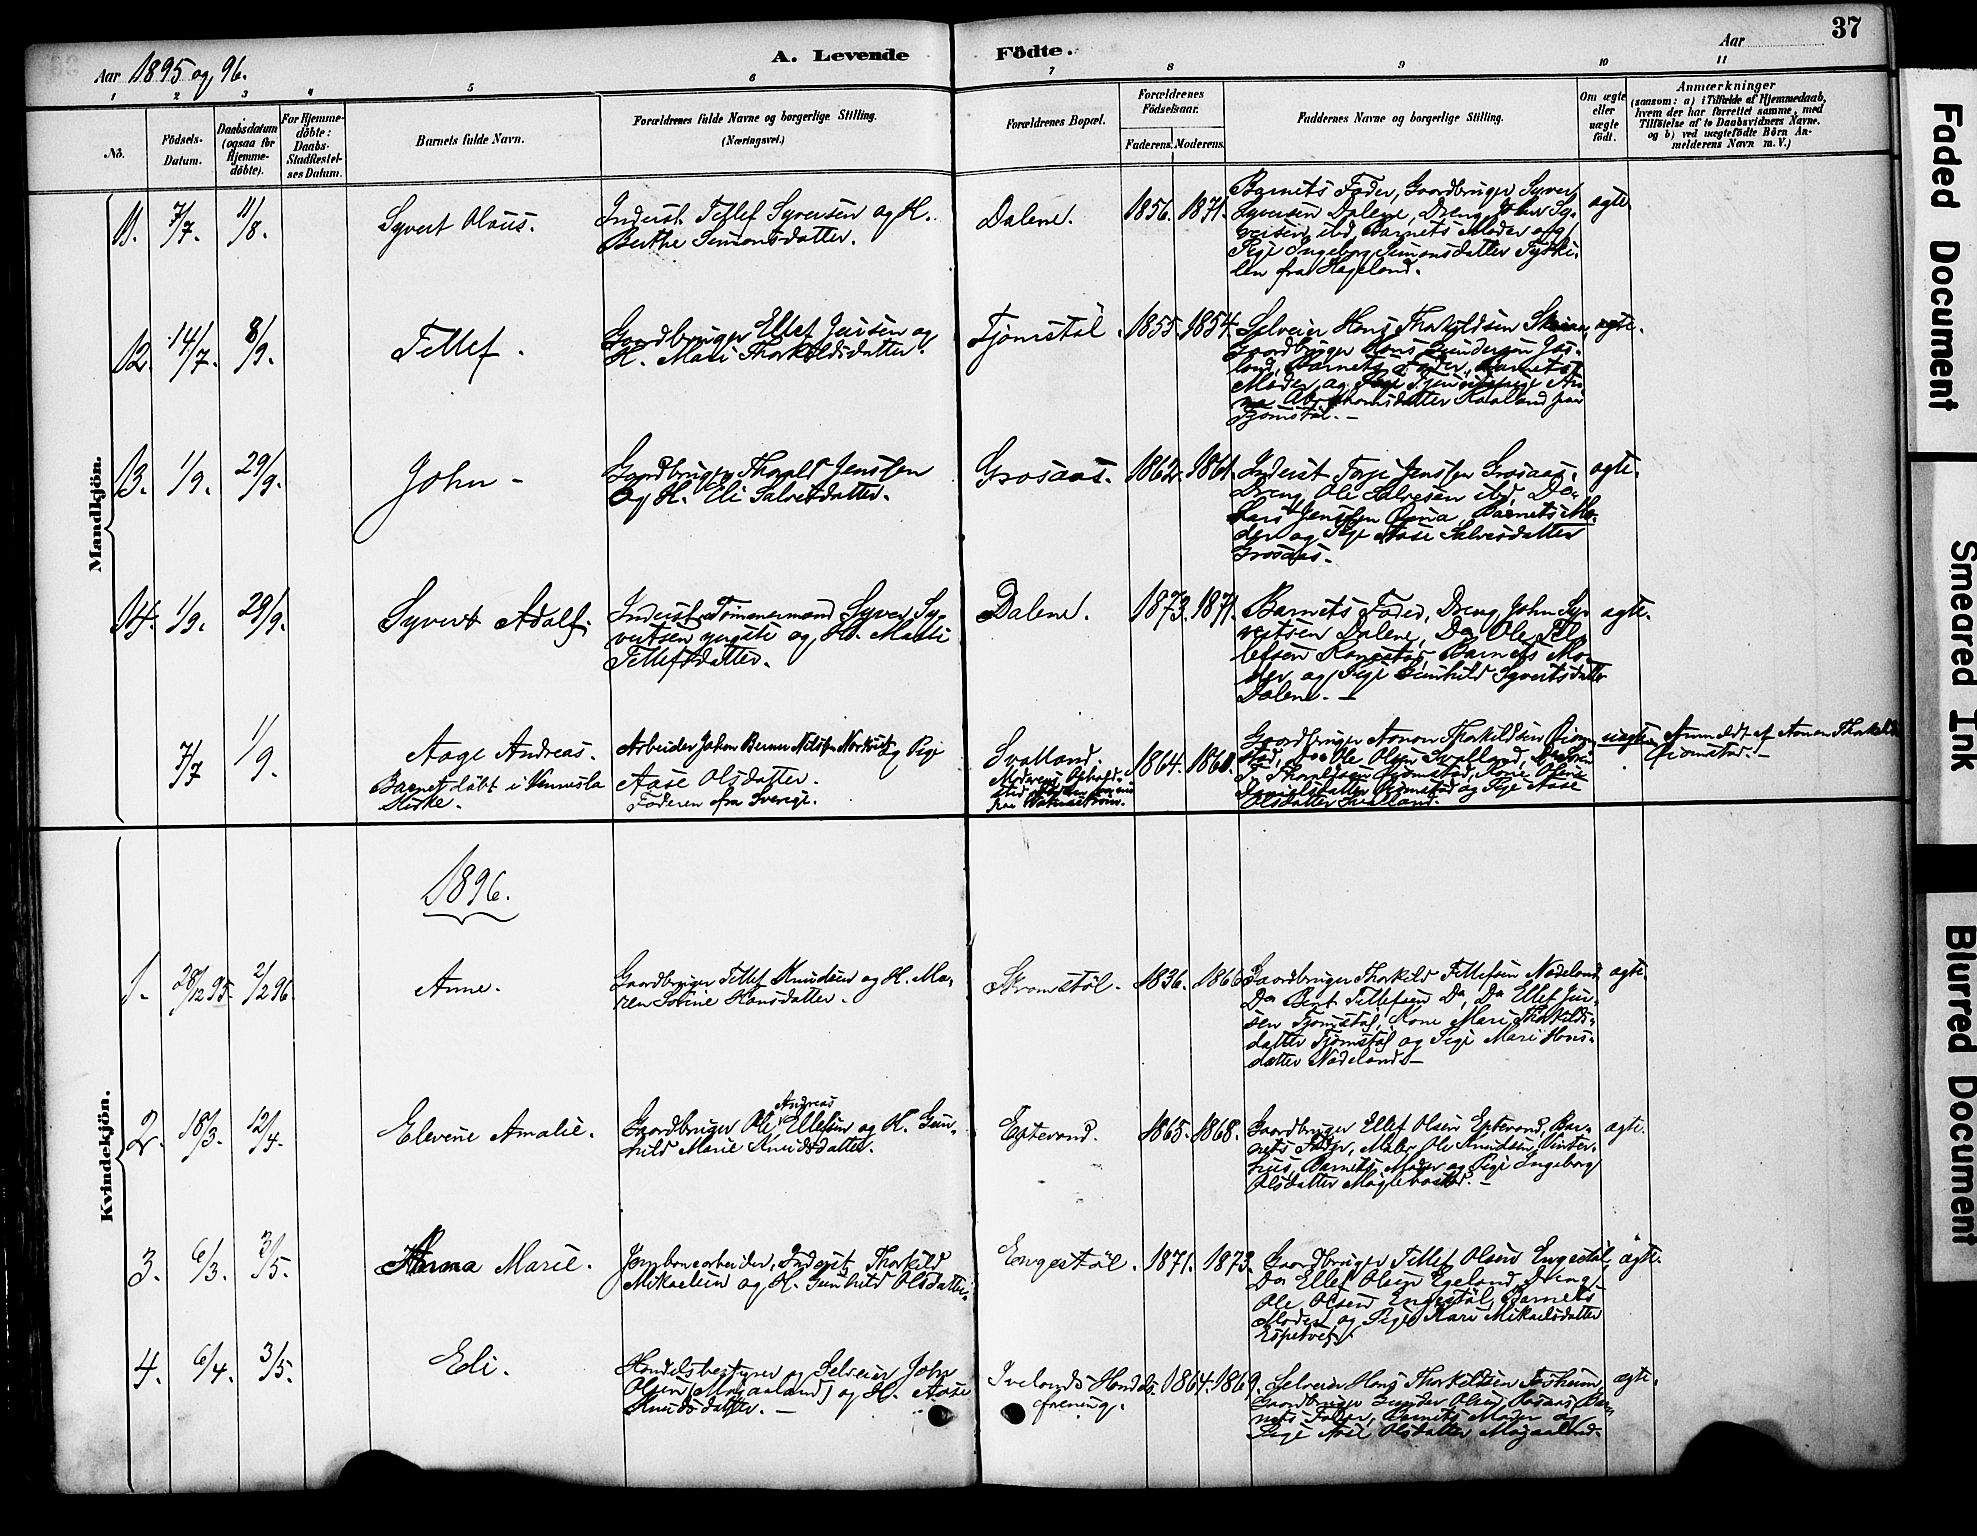 37
Aar 1895 og 96.
A. Levende Födte.
Aar
1 2 3 4 5 6 7 8 9 10 11
No.
Födsels-
Datum.
Daabsdatum
(ogsaa for
Hjemme-
döbte).
For Hjemme-
döbte:
Daabs-
Stadfæstel-
ses Datum.
Barnets fulde Navn.
Forældrenes fulde Navne og borgerlige Stilling.
(Næringsvei.)
Forældrenes Bopæl.
Forældrenes
Födselsaar.
Faderens. Moderens.
Faddernes Navne og borgerlige Stilling.
Om ægte
eller
uægte
födt.
Anmærkninger
(saasom: a) i Tilfælde af Hjemmedaab,
hvem der har forrettet samme, med
Tilföielse af to Daabsvidners Navne.
og b) ved uægtefödte Börn An-
melderens Navn m. V.)
Mandkjön.
11. 7/7. 11/8.
Syvert Olaus.
Inderst Tellef Syversen og H.
Berthe Simonsdatter.
Dalene.
1856. 1871.
Barnets Fader, Gaardbruger Syver
Syversen Dalene, Dreng John Sy-
versen ibd, Barnets Moder og
Pige Ingeborg Simonsdatter
fra Hægeland.
ægte.
12. 14/7. 8/9.
Tellef.
Gaardbruger Ellef Jensen og
H. Mari Thorkildsdatter.
Tjomstøl.
1855. 1854.
Selveier Hans Thorkildsen
Gaardbruger Hans Gundersen
Barnets Fader, Barnets
Moder og
Abrahamsdatter Haaland paa
Tjomstøl.
ægte.
13. 1/9. 29/9.
John
Gaardbruger Thorald Jenssen
og H. Eli Salvesdatter.
Grosaas.
1862. 1861.
Inderst Torje Jenssen Grosaas,
Dreng Ole Salvesen ibd, Do
Lars Jenssen Barnets Mo-
der og Pige Aase Salvesdatter
Grosaas.
ægte.
14. 1/9. 29/9.
Syvert Adolf.
Inderst Tømmermand Syver Sy-
vertsen yngste og H. Marte
Tellefsdatter.
Dalene.
1873. 1871.
Barnets Fader, Dreng John Syv-
vertsen Dalene, Do Ole Tel-
lefsen Barnets Mo-
der og Pige Gunhild Syvertsdatter
Dalene.
ægte.
7/7 1/9.
Aage Andreas.
Barnet døbt i Vennesla
Kirke.
Arbeider Johan Nilsen og Pige
Aase Olsdatter.
Faderen fra Sverige.
Svalland.
Moderens Ophold-
1864. 1860.
Gaardbruger Aanon Thorkildsen
Ole Olsen Svalland,
Kone
Danielsdatter og Pige Aase
Olsdatter Svalland.
uægte
Anmeldt af Aanon
Kvindekjön.
1896.
1. 28/12 95. 2/2 96.
Anne.
Gaardbruger Tellef Knudsen og H. Ma-
ren Sofine Hansdatter.
1836. 1866.
Gaardbruger Thorkild Tellefsen Nodeland
Do Bent Tellefsen Do, Do Ellef Jen-
sen Tjomstøl, Kone Mari Thorkilds-
datter Tjomstøl og Pige Mari Hans-
datter Nodeland.
ægte.
2. 18/3. 12/4.
Elevine Amalie.
Gaardbruger Ole Andreas Ellefsen og H. Gun-
hild Marie Knudsdatter.
Eptevand.
1865. 1868.
Gaardbruger Ellef Olsen Eptevand, Bar-
nets Fader, Maler Ole Knudsen Vinter-
hus, Barnets Moder og Pige Ingeborg
Olsdatter
ægte.
3. 6/3. 3/5.
Anna Marie.
Jernbanearbeider, Inderst Thorkild
Mikaelsen og H. Gunhild Olsdatter.
Engestøl.
1871. 1873.
Gaardbruger Tellef Olsen Engestøl,
Do Ellef Olsen Egeland, Dreng
Ole Olsen Engestøl, Barnets
Moder og Pige Kari Mikaelsdatter
ægte.
4. 6/4. 3/5.
Eli.
Handelsbestyrer og Selveier John
Olsen og H. Aase
Knudsdatter.
Ivelands Handels-
forening.
1864. 1869.
Selveier Hans Thorkildsen
Gaardbruger Gunder Olsen Bar-
nets Fader, Barnets Moder og
Pige Olsdatter
ægte.
Faded Document
Smeared Ink
Blurred Document